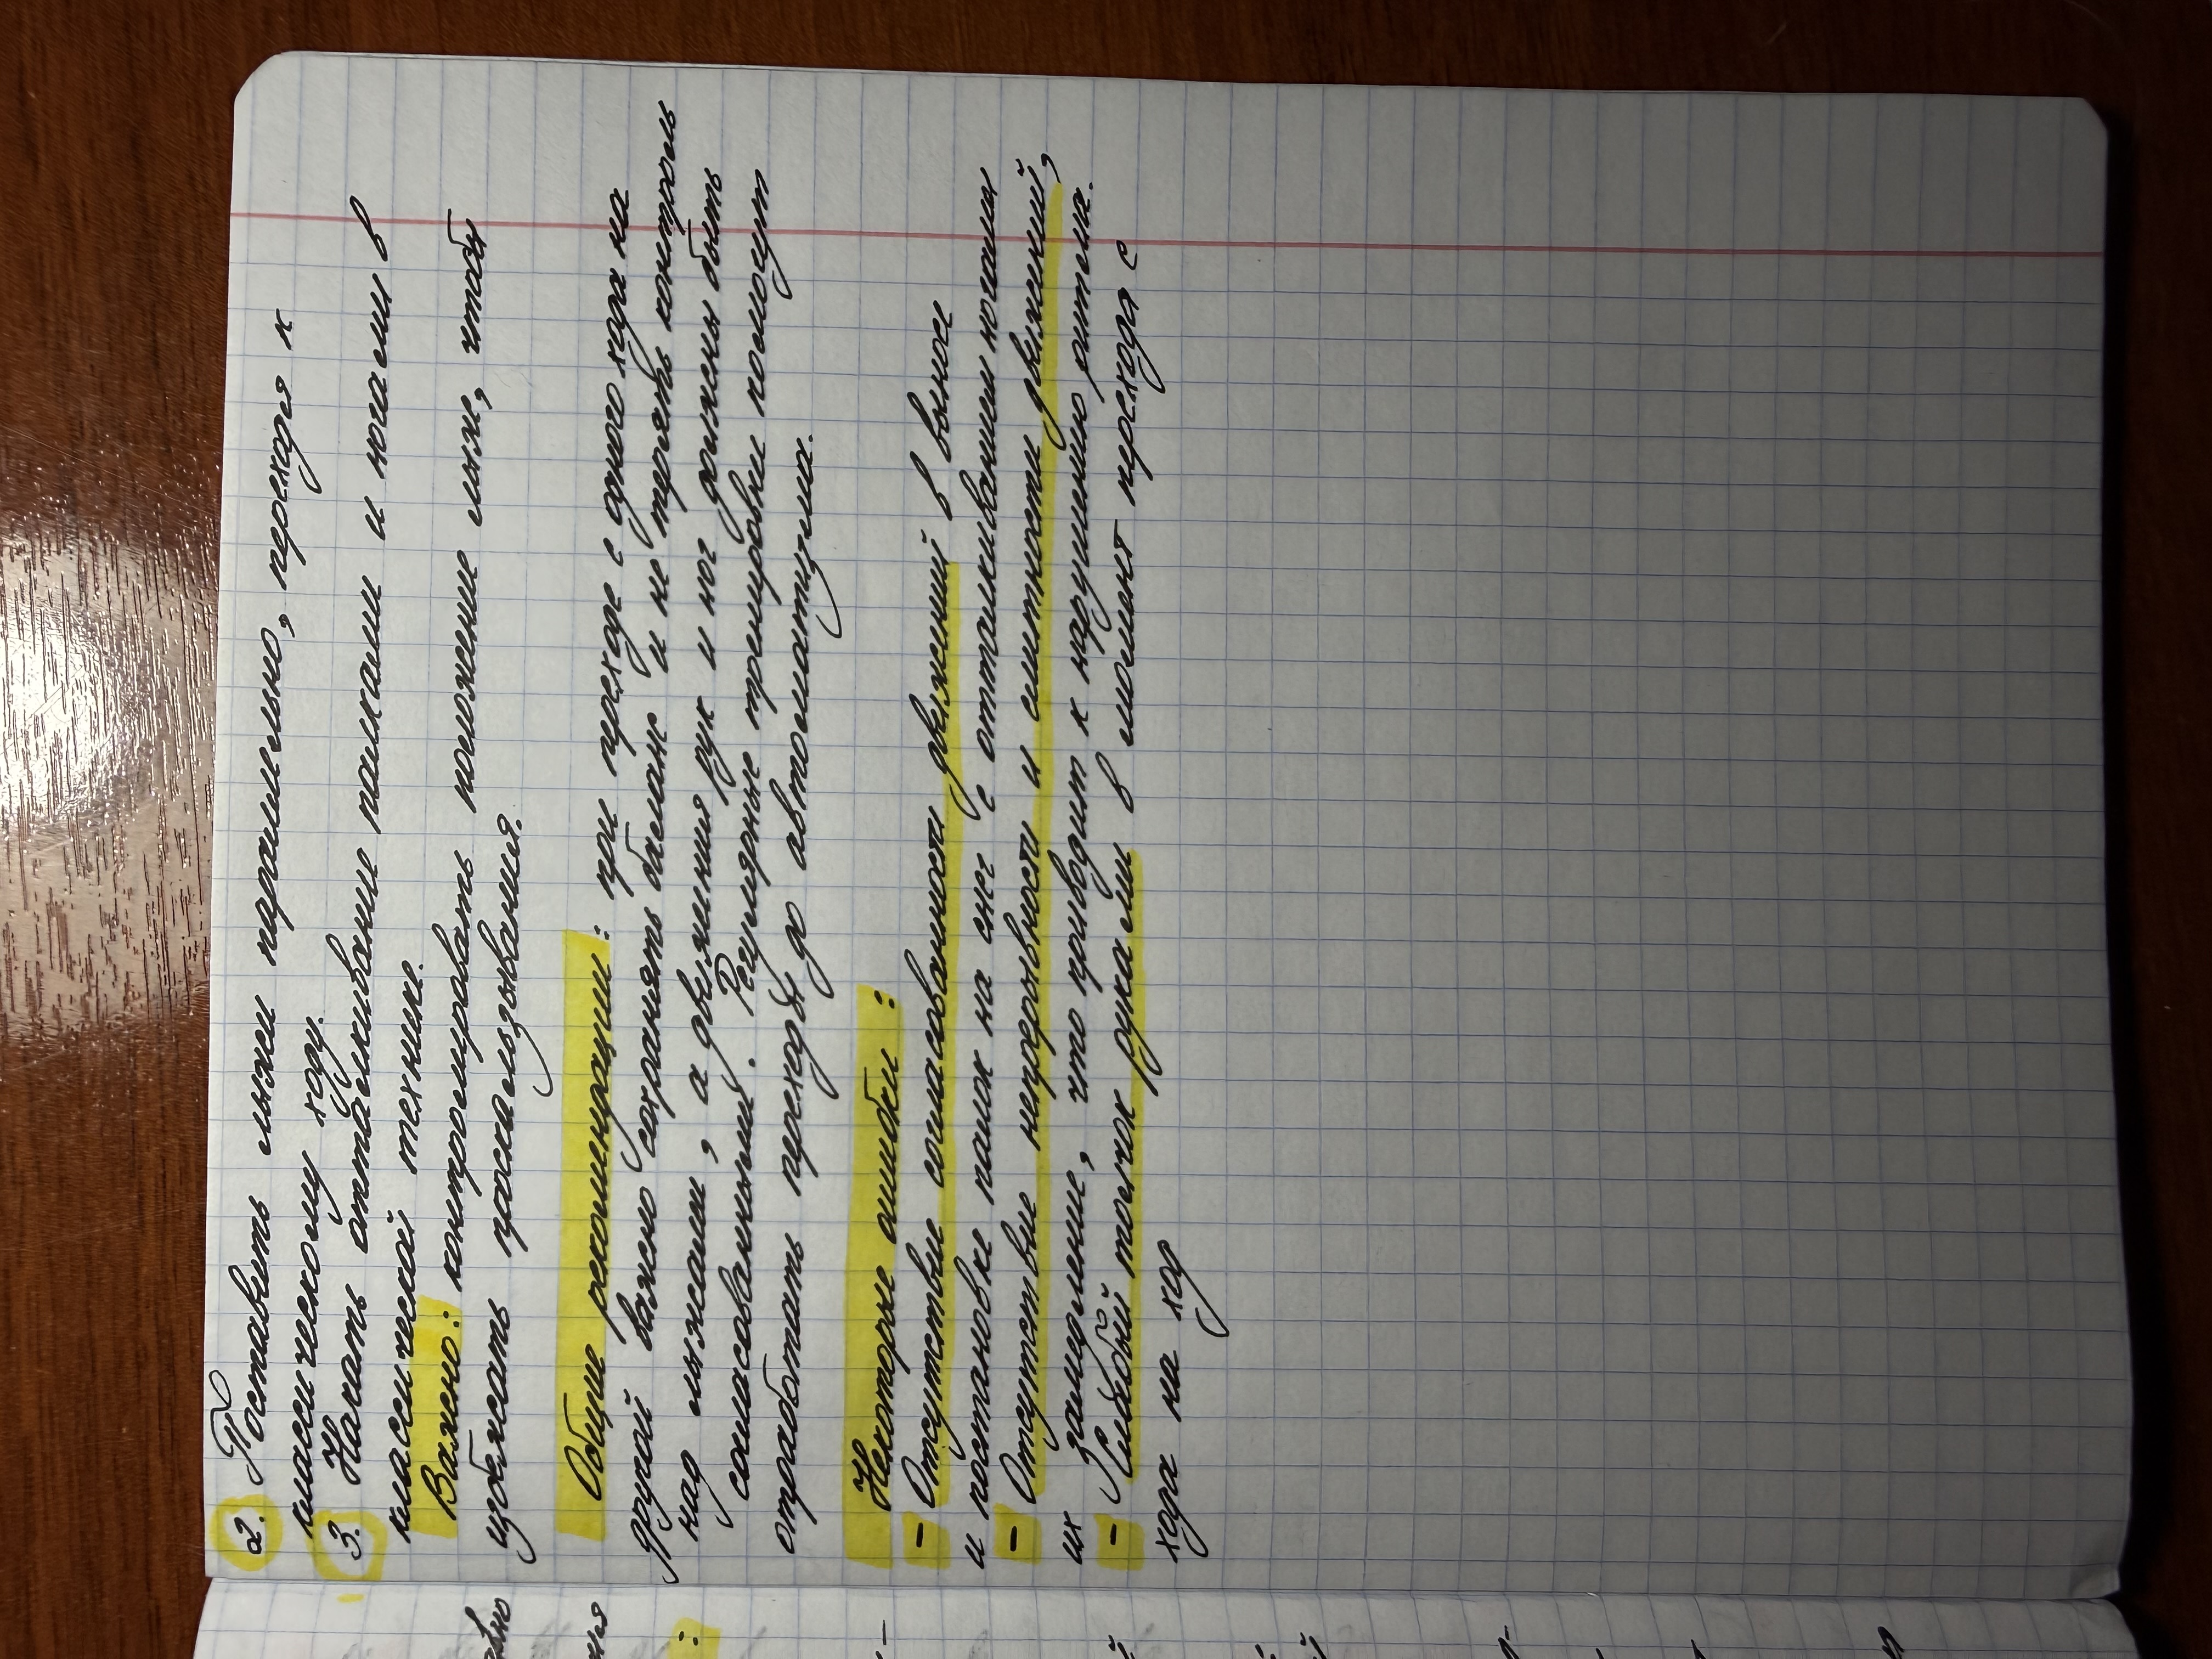 2. Поставить лыжи параллельно, переходя к
классическому ходу.
3. Начать отталкивание палками и ногами в
классической технике.
Важно: контролировать положение лыж, чтоб
избежать проскальзывания.
Общие рекомендации: при переходе с одного хода на
другой важно сохранять баланс и не терять контроль
над лыжами, а движения рук и ног должны быть
согласованный. Регулярные тренировки помогут
отработать переходы до автоматизма.
Некоторые ошибки:
- Отсутствие согласованности движений в выносе
и постановке палок на снег с отталкиванием ногами
- Отсутствие непрерывности и слитности движений,
их замедление, что приводит к нарушению ритма.
- Слабый толчок руками в момент перехода с
хода на ход